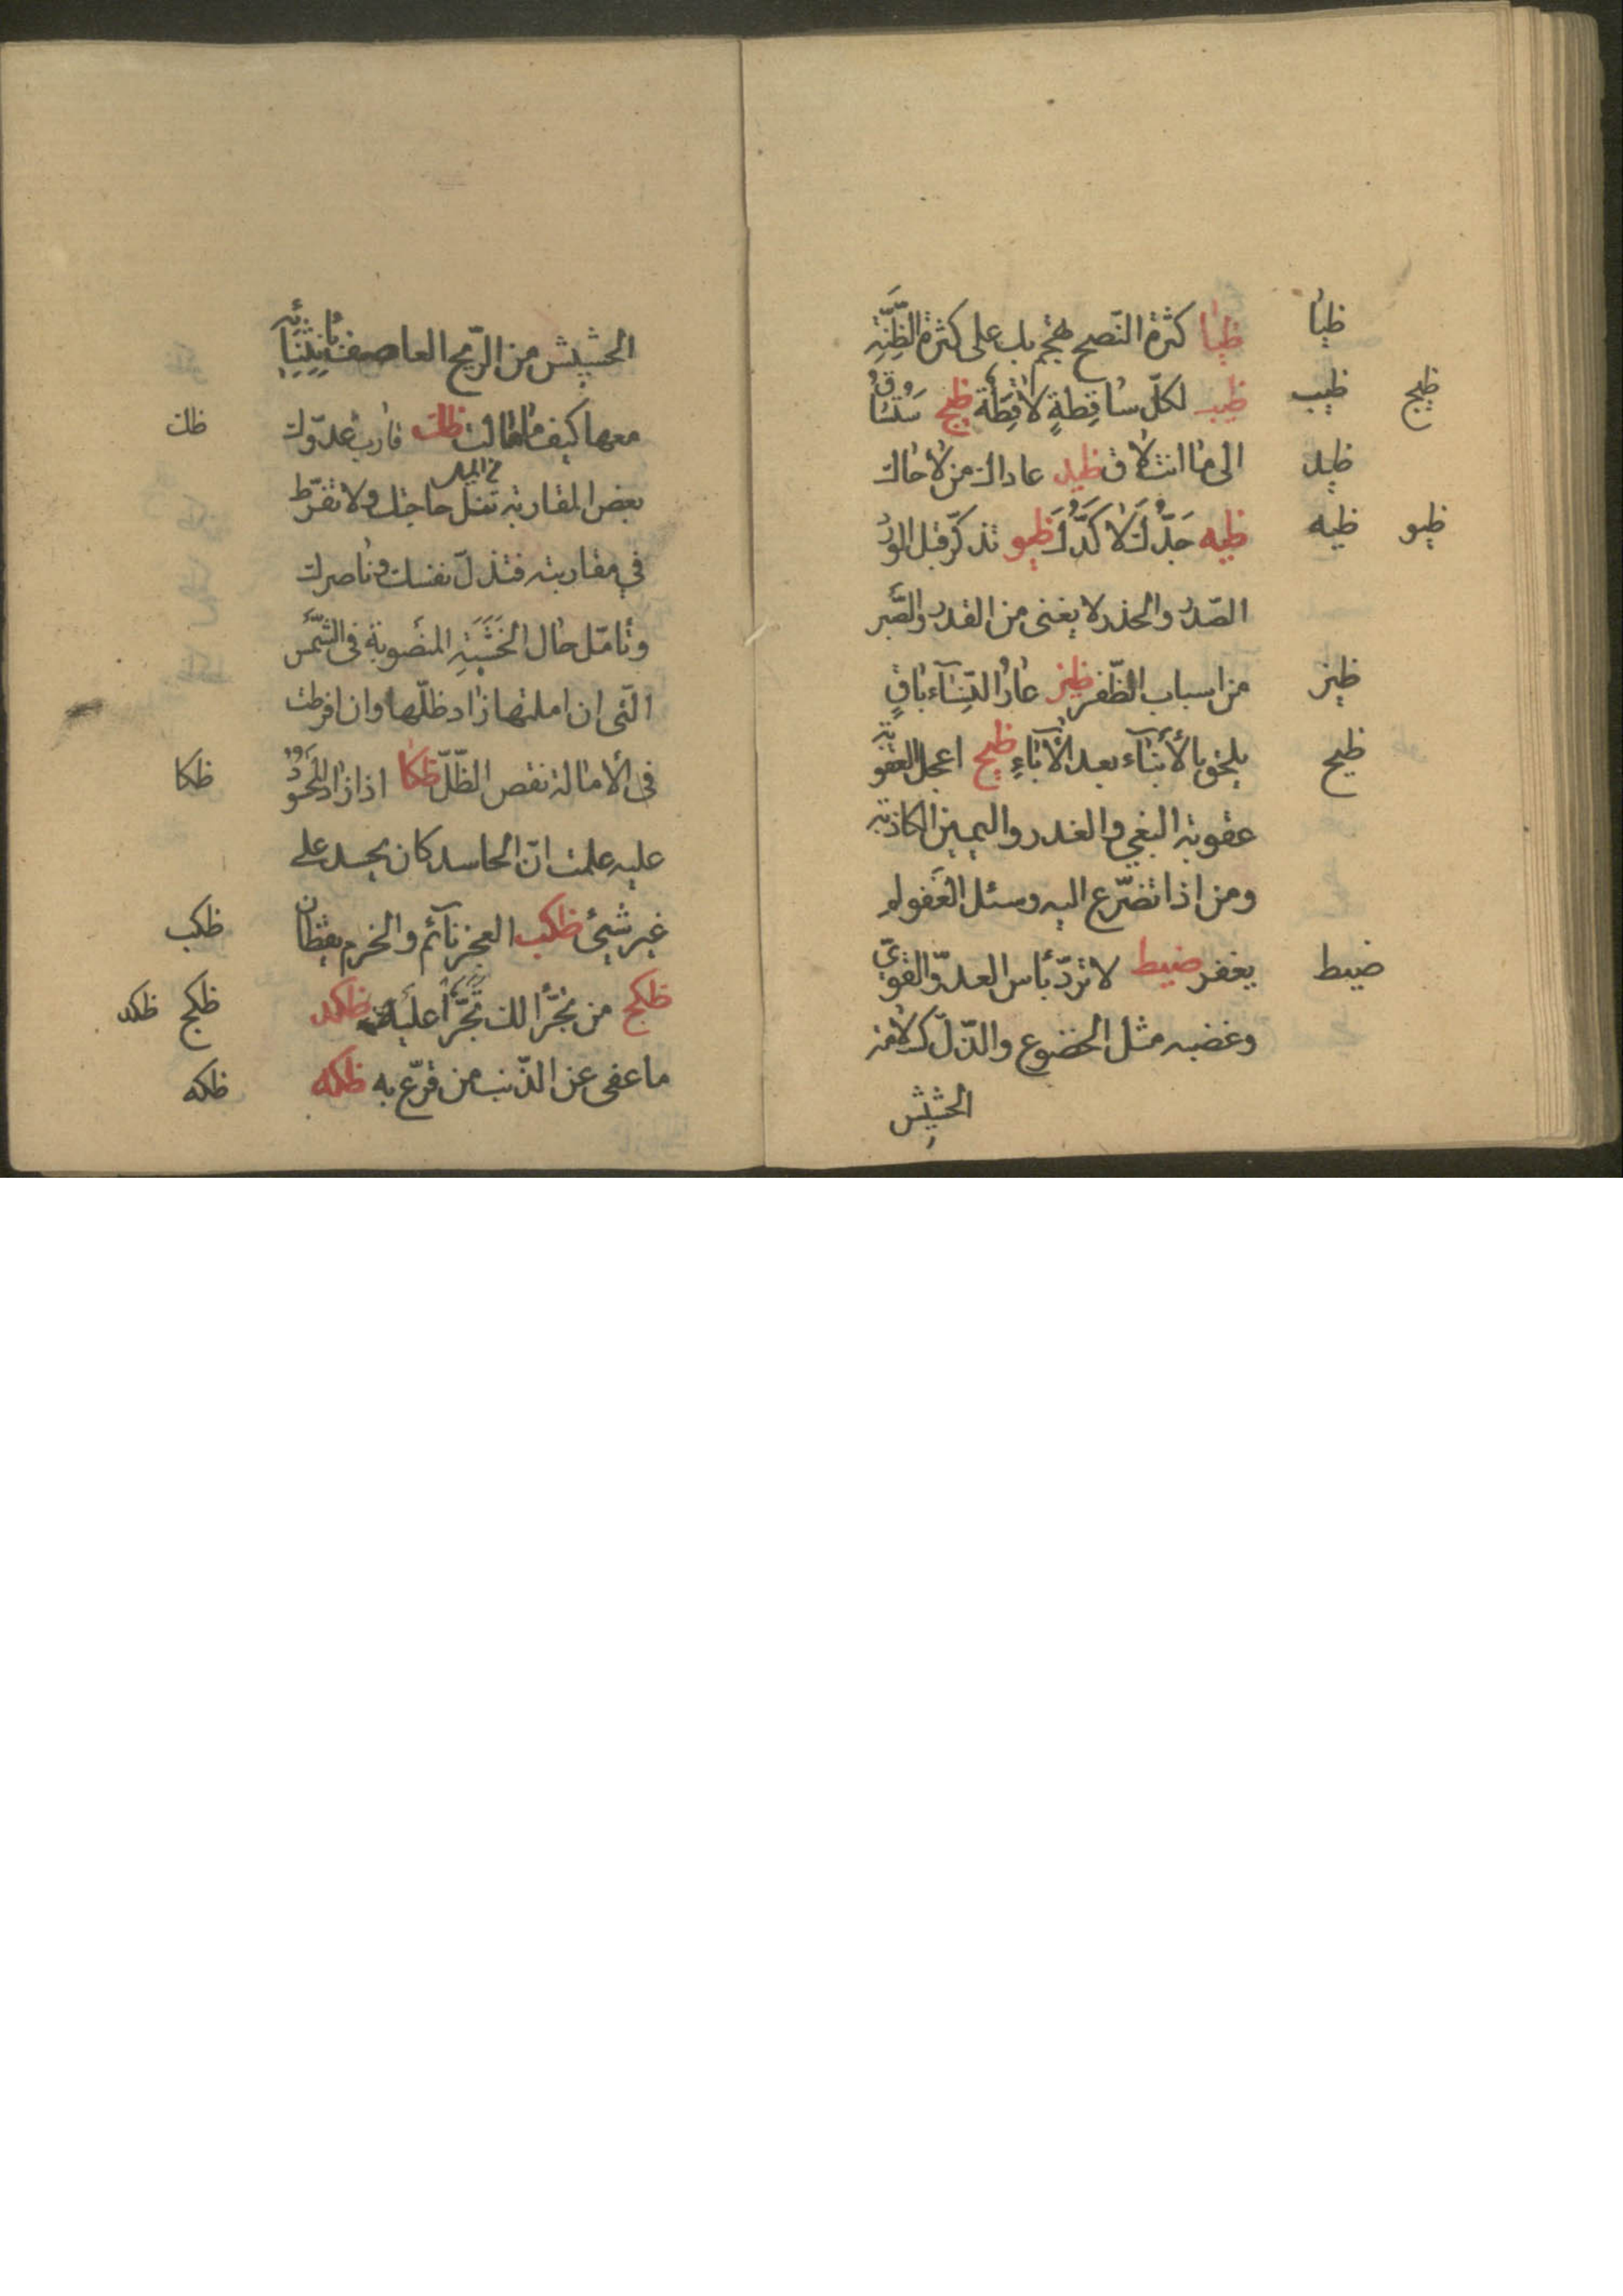 ظيا كثرة النّصح تهجم بك على كثرة الظِّنَّةِ ظيا
ظيب لكلّ ساقِطةٍ لاقِطَة ظيج ستساق ظيب ظيج
الى ما انت لاق ظيد عاداك من لاحاك ظيد
ظيه جَدُّكَ لا كَدُّكَ ظيو تذكّر قبل الورد ظيه ظيو
الصّدر والحذر لا يغنى من القدر والصّبر
من اسباب الظّفر ظيز عار النّسآء باقٍ ظيز
يلحق بالأبنآء بعد الآباءِ ظيح اعجل العقوبة ظيح
عقوبة البغي والغدر واليمين الكاذبة
ومن اذا تضرّع اليه وسئل العَفو لم
يغفر ضيط لا تردّ بأس العدوّ القويّ ضيط
وغضبه مثل الخضوع والذّلّ كسلامة
الحشيش
الحشيش من الرّيح العاصف بانثنائه
معها كيف ما مالت ظك قارب عدوّك ظك
بعض المقاربة تنل حاجتك ولا تفرّط
في مقاربته فتذلّ نفسك وناصرك
وتأمّل حال الخَشَبَةِ المنصوبة فى الشّمس
الّتى ان املتها زاد ظلّها وان افرطت
فى الأمالة نقص الظّلّ ظكا اذا زال المحسود ظكا
عليه علمت انّ الحاسد كان يحسد على
غير شيئ ظكب العجز نآئم والحزم يقظان ظكب
ظكج من تجرّأ لك تجرّأ عليك ظكد ظكج ظكد
ما عفى عن الذّنب من قرّع به ظكه ظكه